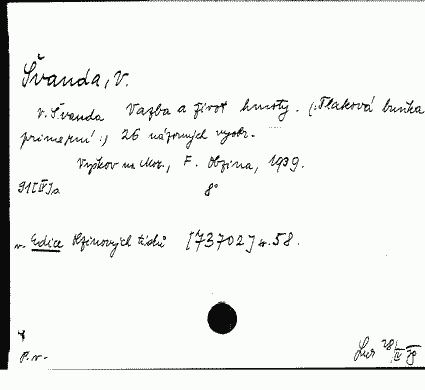 Švanda, V.
V. Švanda Vazba a život hmoty. (:Tlaková buňka
primerní:) 26 názorných vyobr.
Vyškov na Mor., F. Obzina, 1939.
91[IV]a 8°
v. Edice Obzinových tisků [73702] sv. 58.